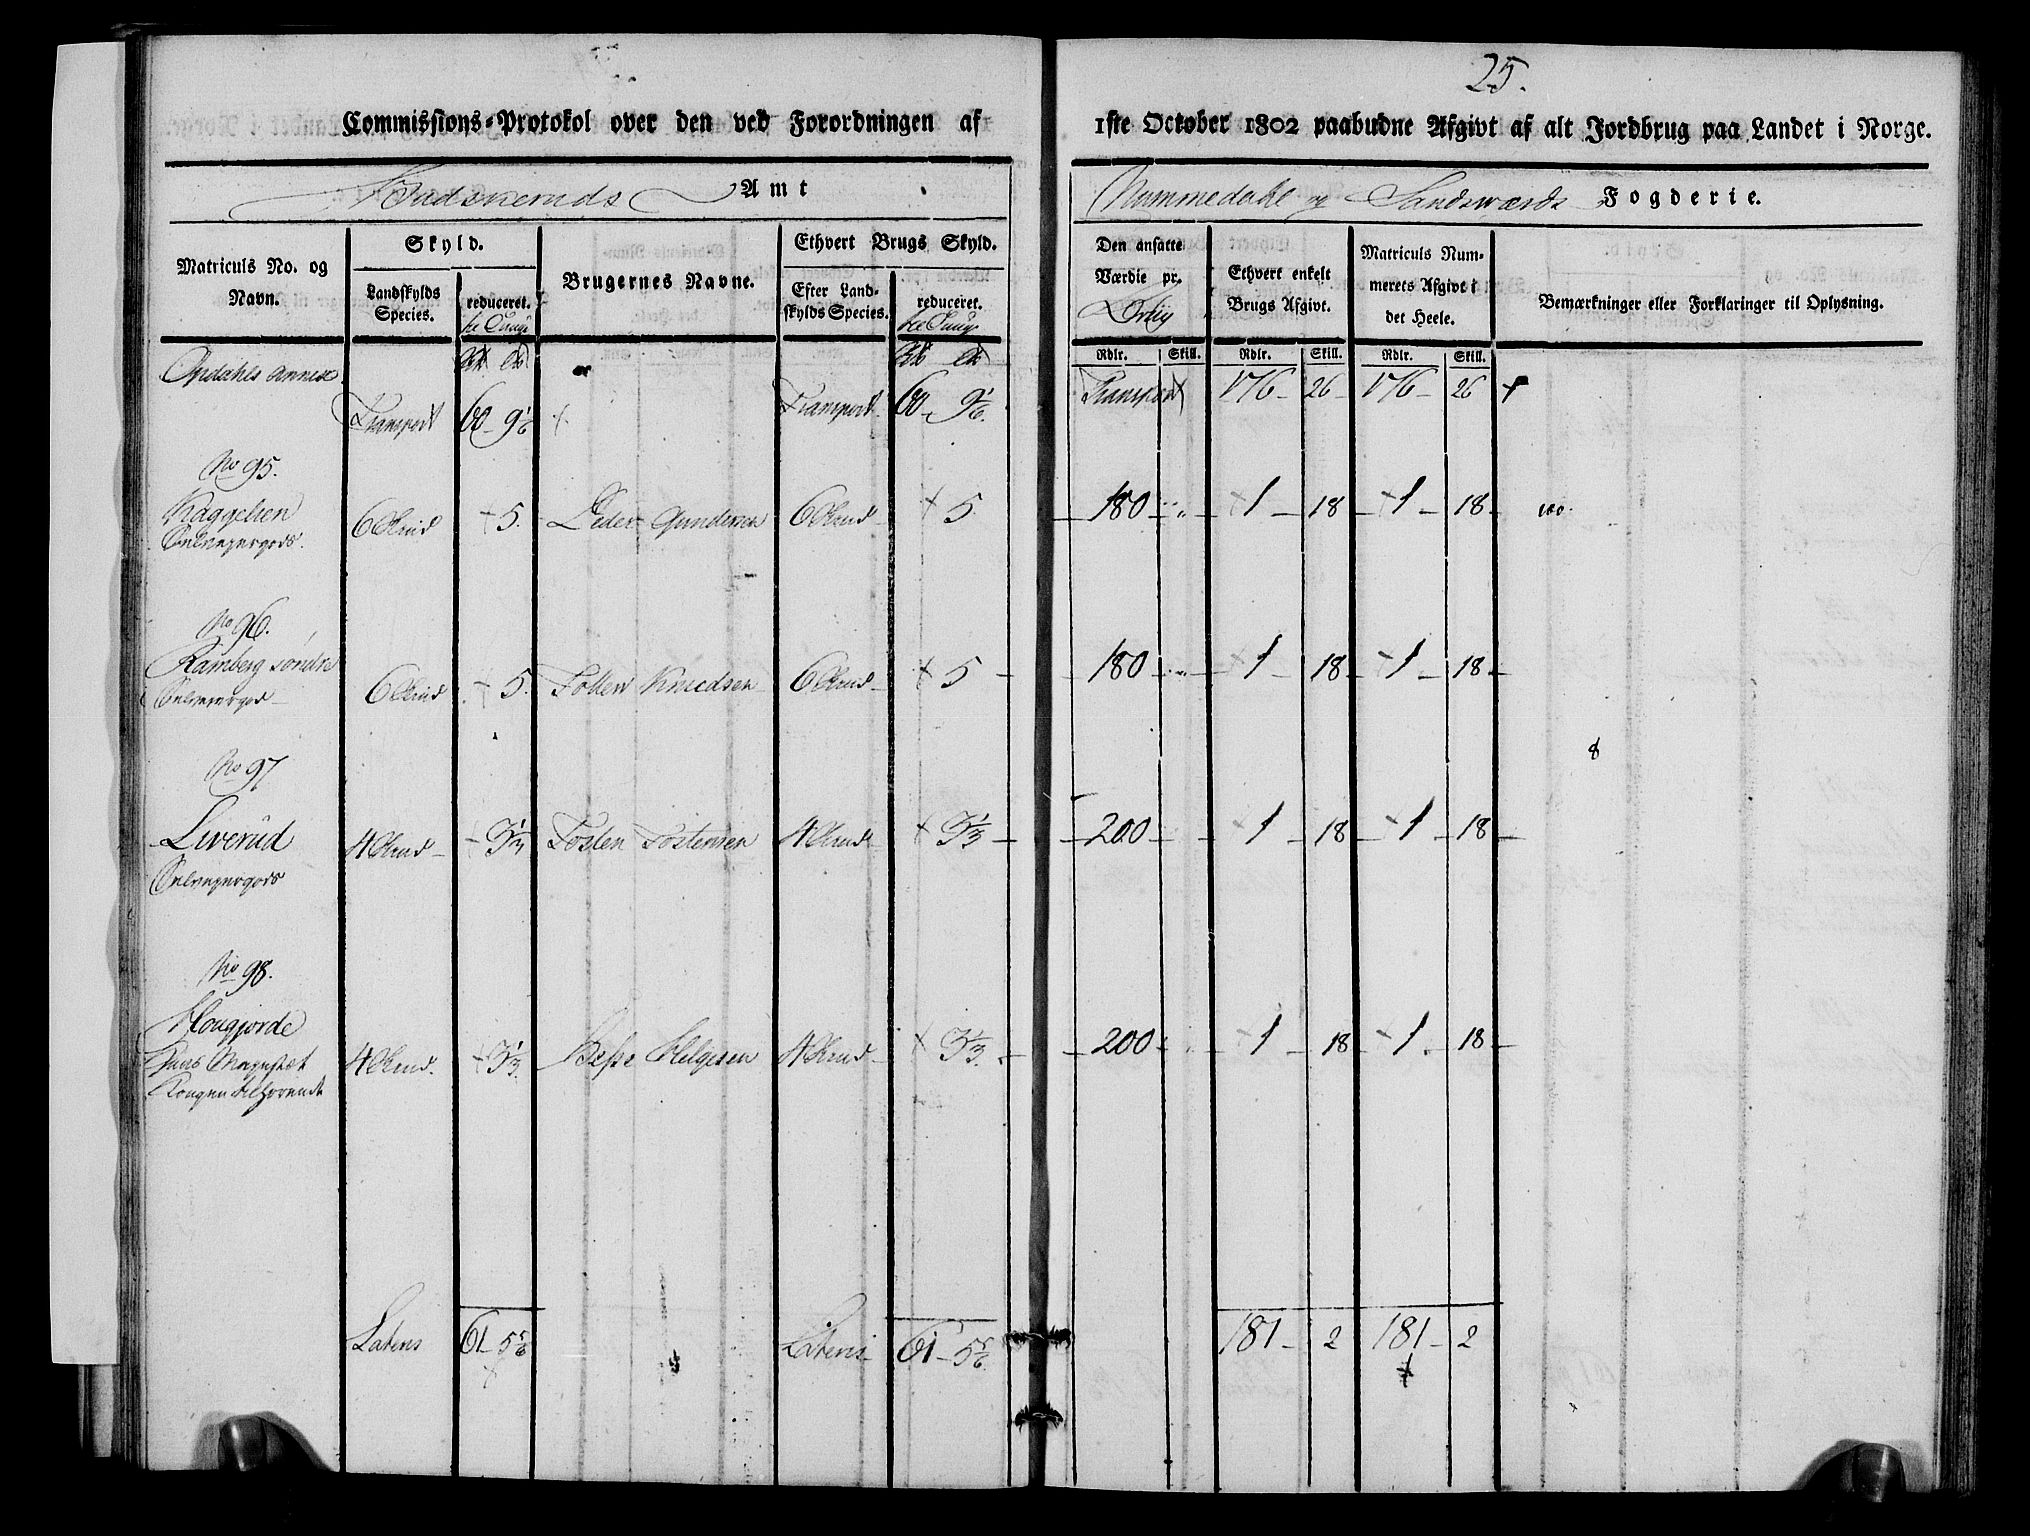 25.
Commissions-Protokol over den ved Forordningen af 1ste October 1802 paabudne Afgivt af alt Jordbrug paa Landet i Norge.
Budskeruds Amt
Nummedahl og Sandsværds Fogderie.
Matriculs No. og Navn.
Skyld.
Landskylds Species.
reduceret.
Brugernes Navne.
Ethvert Brugs Skyld.
Efter Landskylds Species.
reduceret.
Den ansatte Værdie pr.
Ethvert enkelt Brugs Afgivt.
Matriculs Nummerets Afgivt i det Heele.
Bemærkninger eller Forklaringer til Oplysning.
Rdlr. Skill. Rdlr. Skill. Rdlr. Skill.
Opdahls Annex
Transport 60 - 9 1/6 Transport 60 - 9 1/6 Transport 176 - 26 - 176 - 26
No 95.
6 Skind 5. Peder Gundersen 6 Skind 5 180 1 18 1 18
Selveyergods.
No 96.
Ramberg søndre
Selveyergods 6 Skind 5. Knudsen 6 Skind 5 180 1 18 1 18
No 97
Liverud 4 Skind 3 1/3 Tosten Tostensen 4 Skind 3 1/3 200 1 18 1 18
Selveyergods
No 98.
Hougjorde
Hans Mayestæt 4 Skind. 3 1/3 Helgesen 4 Skind 3 1/3 200 1 18 1 18
Kongen tilhørende
Lateris 61 - 5 5/6 Lateris 61 - 5 5/6 181 - 2 181 - 2